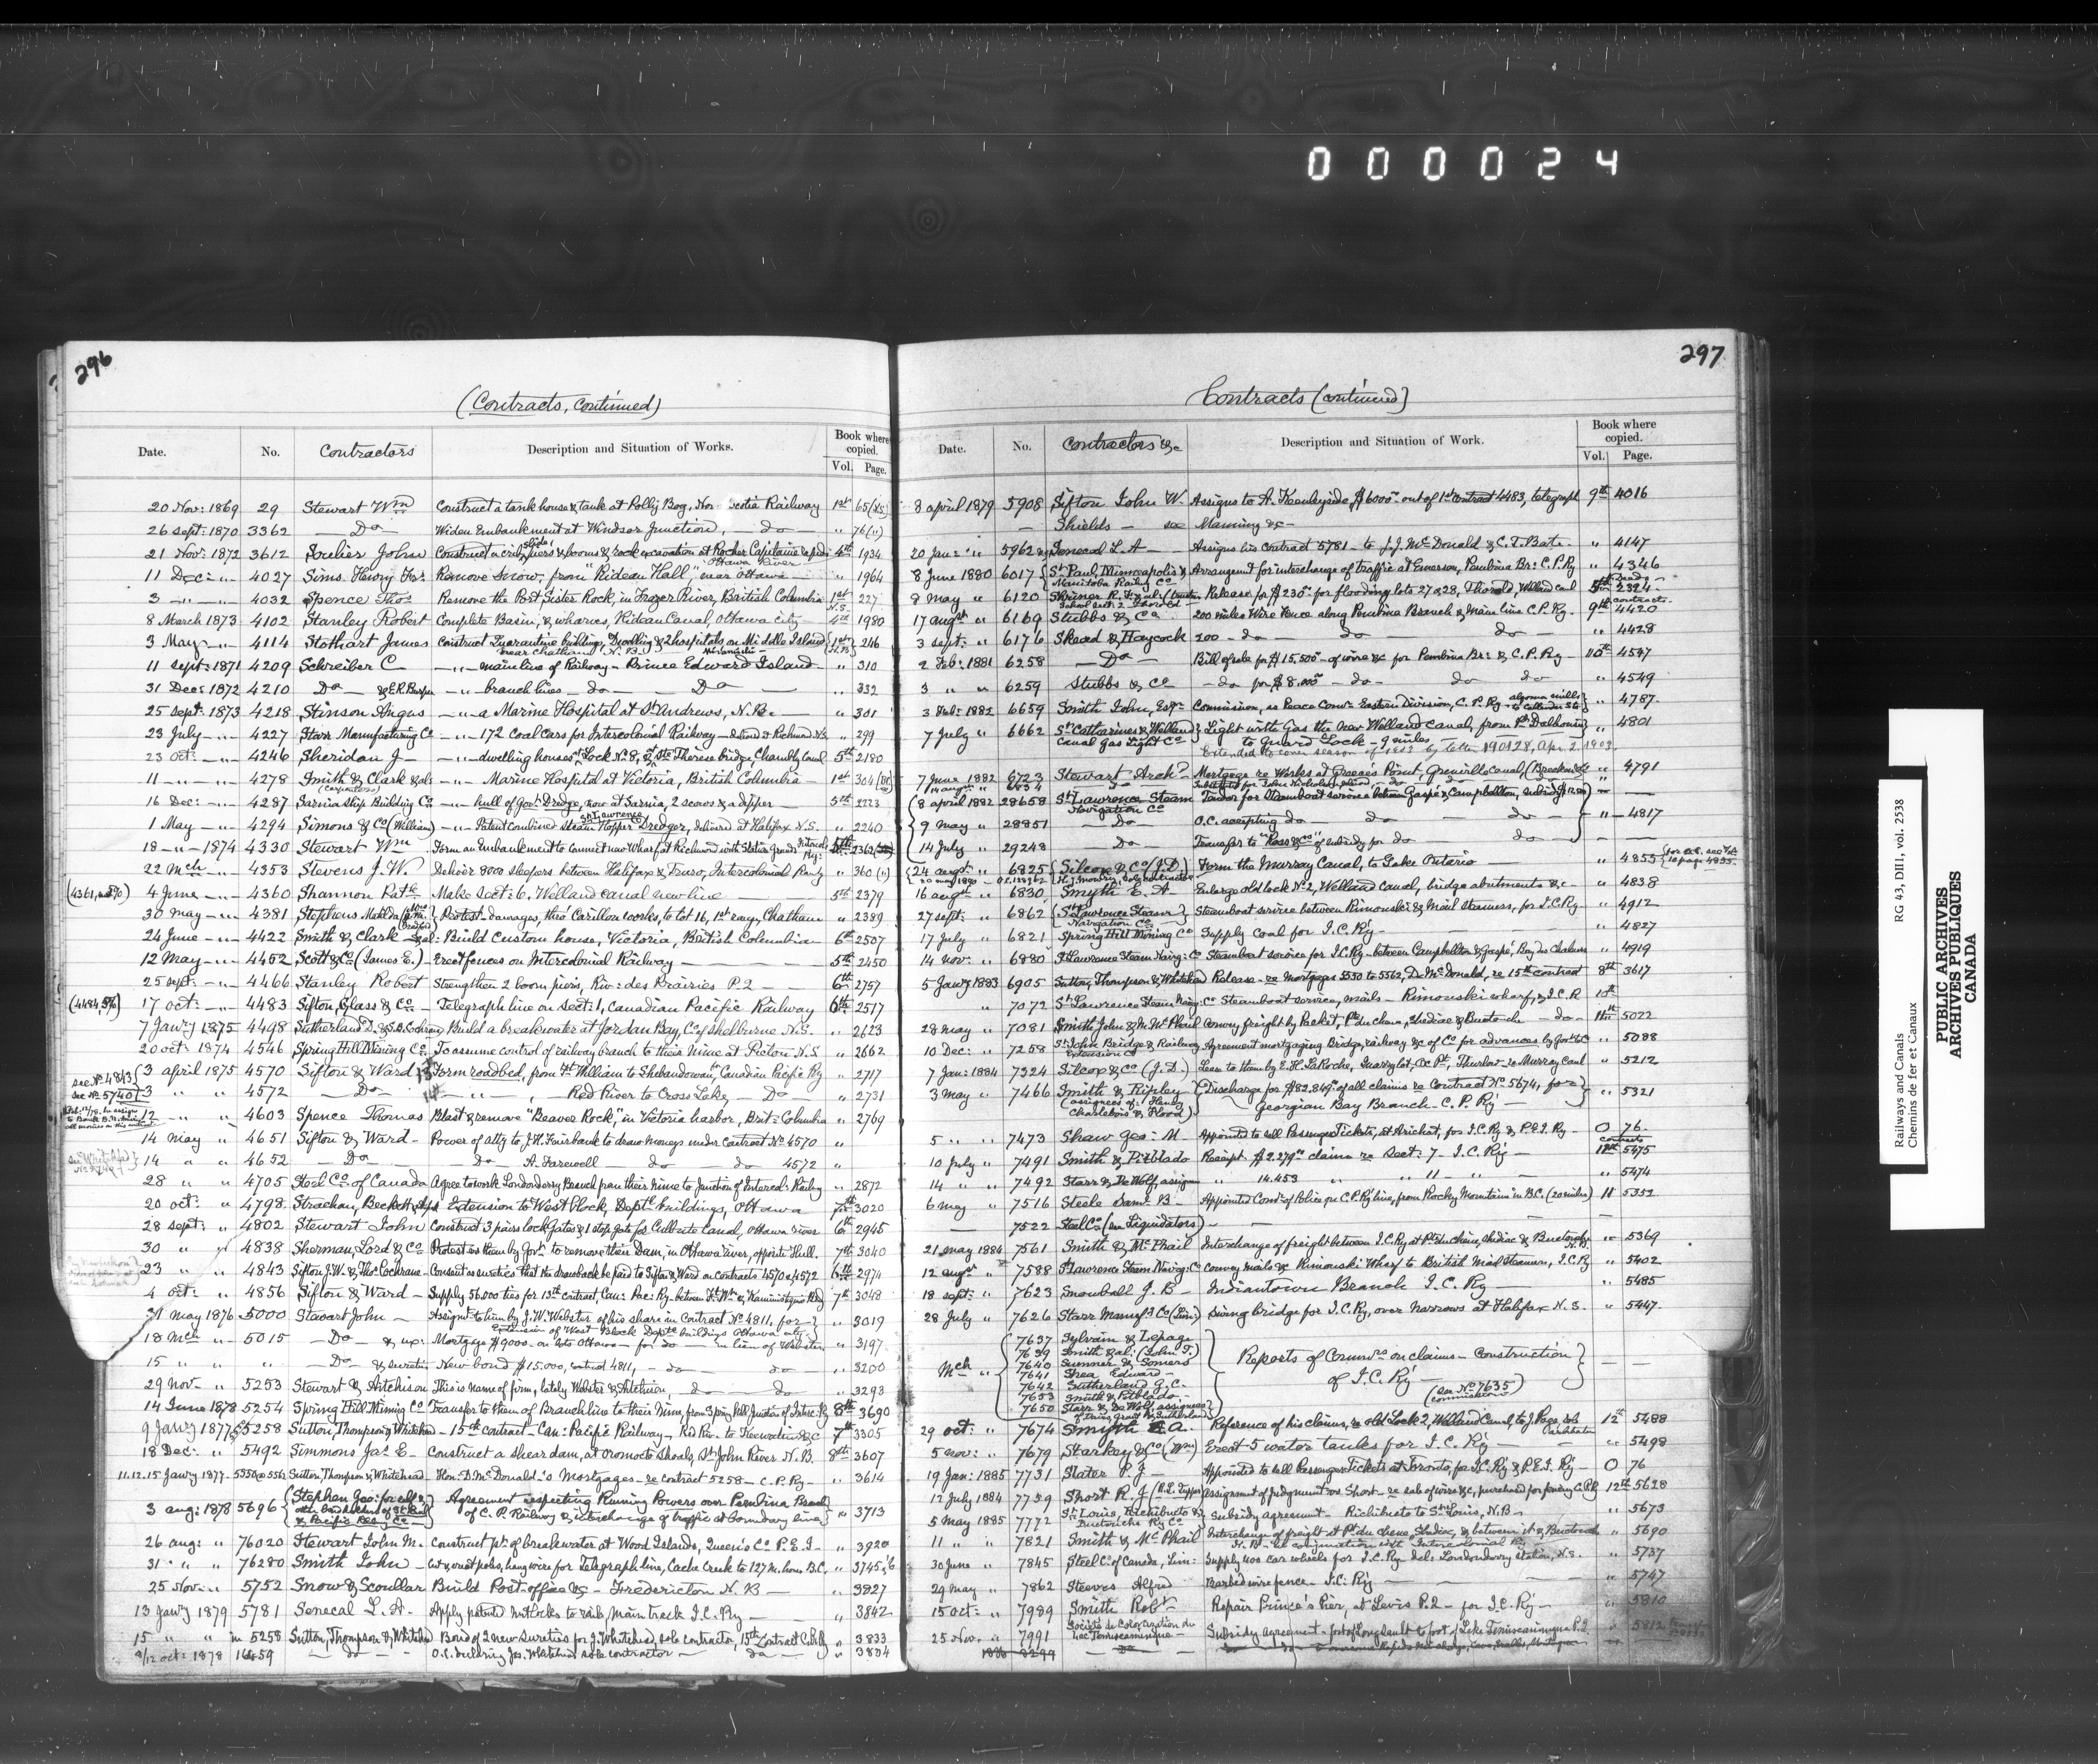 000024
296
(Contracts, continued)
Date. No. Contractors Description and Situation of Works. Book where copied. Vol. Page.
20 Nov: 1869 29 Stewart Wm Construct a tank house & tank at Polly Bog, Nov scotia Railway 1st 65 (N.S.)
26 sept: 1870 3362 — Do — Widen Embankment at Windsor Junction, — do — " 76 (")
21 Nov: 1872 3612 Soulier John Construct slide, piers & booms & rock excavation at Rocher Capitaine rapids Ottawa River 4th 1934
11 Dec: — " — 4027 Sims Henry Remove Snow, from "Rideau Hall," near Ottawa — " 1964
3 — " — 4032 Spence Thos Remove the Port Sister Rock, in Frazer River, British Columbia 1st N.S. 227
8 March 1873 4102 Stanley Robert Complete Basin, & wharves, Rideau Canal, Ottawa city 4th 1980
3 May — " — 4114 Stothart James Construct Quarantine building, Dwelling & 2 hospitals on Middle Island near Chatham, N.B. 1st 246
11 sept: 1871 4209 Schreiber C — " — main line of Railway — Prince Edward Island — " 310
31 Dec: 1872 4210 Do — & E.R. Burpee — " — branch lines — do — Do — " 332
25 Sept: 1873 4218 Stinson Angus — " — a Marine Hospital at St Andrews, N.B. — " 301
23 July — " — 4227 Starr Manufacturing Co — " — 172 Coal Cars for Intercolonial Railway — " 299
23 oct: — " — 4246 Sheridan J — — " — dwelling houses at Lock No 8, & at Ste Therese bridge, Chambly Canal 5th 2180
11 — " — — 4278 Smith & Clark & als (carpenters) — " — Marine Hospital at Victoria, British Columbia — 1st 304
16 Dec: — " — 4287 Sarnia Ship Building Co — " — hull of Govt Dredge, now at Sarnia, 2 scows & a dipper — 5th 2223
1 May — " — 4294 Simons & Co (William) — " — Patent Combined Steam Hopper Dredger, St Lawrence delivered at Halifax N.S. " 2240
18 — " — 1874 4330 Stewart Wm Form an Embankment to Connect new Wharf at Richmond with Station Grounds 5th 2362
22 Mch — " — 4353 Stevens J. W. Deliver 8000 sleepers between Halifax & Truro, Intercolonial Railwy " 360 (")
(4361, 5%) 4 June — " — 4360 Shannon Patk Make Sect: 6. Welland canal new line — 5th 2379
30 May — " — 4381 Stephens Matilda Protest — damages, thro Carillon works, to lot 16, 1st range, Chatham " 2389
24 June — " — 4422 Smith & Clark & al: Build Custom house, Victoria, British Columbia — 6th 2507
12 May — " — 4452 Scott & Co (James E.) — Erect fences on Intercolonial Railway — 5th 2450
25 sept: — " — 4466 Stanley Robert Strengthen 2 boom piers, Riv: des Prairies P.Q. — 6th 2757
(4484, 5%) 17 oct: — " — 4483 Sifton, Glass & Co — Telegraph line on Sect: 1, Canadian Pacific Railway 6th 2517
7 Jany 1875 4498 Sutherland Build a breakwater at Jordan Bay, Co of Shelburne N.S. " 2623
20 oct: 1874 4546 Spring Hill Mining Co To assume control of railway branch to their mine at Pictou N.S. " 2662
see No 4843
see No 5740
3 april 1875 4570 Sifton & Ward 13 Form roadbed, from Ft William to Shebandowan Canadian Pacific Ry " 2717
3 " " 4572 — Do — 14 — , Red River to Cross Lake, — Do — " 2731
12 — " " 4603 Spence Thomas Blast & remove "Beaver Rock," in Victoria harbor, Brit: Columbia " 2769
14 May " 4651 Sifton & Ward — Power of atty to J.H. Fairbank to draw moneys under contract No 4570 "
14 " " 4652 — Do — Do A. Farewell — do — do 4572 "
28 " " 4705 Steel Co of Canada Agree to work Londonderry Branch from their Mine to Junction of Intercol: Railwy " 2872
20 oct: " 4798 Strachan, Beckett Extension to West block, Deptl buildings, Ottawa 7th 3020
28 sept: " 4802 Stewart John Construct 3 pairs lock gates & 1 stop gate for Culbute Canal, Ottawa River 6th 2945
30 " " 4838 Sherman, Lord & Co Protest on them by Govt to remove their Dam, in Ottawa river, opposite Hull. 7th 3040
23 " " 4843 Sifton J.W. & Thos Cochrane — Consent as sureties that the drawback be paid to Sifton & Ward on contracts 4570 & 4572 6th 2974
4 oct: " 4856 Sifton & Ward — Supply 56000 ties for 13th contract, Can: Pac: Ry between Ft Wm & Kaministiquia 7th 3048
31 May 1876 5000 Stewart John — Assignt to him by J.W. Webster of his share in Contract No 4811, for Extension of West Block Deptl buildings Ottawa city " 3019
18 Mch — " 5015 — Do — & ux: Mortgage $9000 on lots Ottawa — for do — in lieu of Webster " 3197
15 " " " — Do & sureties New bond $15,000, contract 4811, — do — do " 3200
29 Nov — " 5253 Stewart & Aitchison This is name of firm, lately Webster & Aitchison, — do — do " 3293
14 June 1878 5254 Spring Hill Mining Co Transfer to them of Branch line to their Mine, from Spring Hill Junction of Interc: Ry 8th 3690
9 Jany 1877 5258 Sutton, Thompson & Whitehead — 15th contract — Can: Pacific Railway — Red Riv. to Keewatin &c 7th 3305
18 Dec: " 5492 Simmons Jas E — Construct a shear dam, at Oromocto Shoals, St John River N.B. 8th 3607
11.12.15 Jany 1877 5550 to 5562 Sutton, Thompson & Whitehead Hon: D. McDonald's Mortgages — re contract 5258 — C.P. Ry — " 3614
3 aug: 1878 5696 Stephen Geo: & Pacific Agreement respecting Running Powers over Pembina Branch of C.P. Railway & interchange of traffic at boundary line " 3713
26 aug: " 76020 Stewart John M. Construct pt of breakwater at Wood Islands, Queen's Co P.E.I — " 3920
31 " " 76280 Smith John — Cut, erect poles, hang wire for Telegraph line, Cache Creek to 127 M. house B.C. " 3745/6
25 Nov: " 5752 Snow & Scoullar Build Post office &c — Fredericton N.B — " 3827
13 Jany 1879 5781 Senecal L. A. Apply patent nut locks to rails, Main track I.C. Ry — " 3842
15 " " in 5258 Sutton, Thompson & Whitehead Bond of 2 new sureties for J. Whitehead, sole contractor, 15th Contract C.P. Ry " 3833
8/12 oct: 1878 16459 — do — O.C. declaring Jos. Whitehead sole contractor — do — " 3834
297
Contracts (continued)
Date. No. Contractors &c Description and Situation of Work. Book where copied. Vol. Page.
8 april 1879 5908 Sifton John W. Assigns to A. Keenleyside, $6000 out of 1st contract 4483, telegraph 9th 4016
— Shields — see Manning &c —
20 Jan: " 5962 Senecal L. A — Assigns his contract 5781 — to J.J. McDonald & C.T. Bate. " 4147
8 June 1880 6017 St Paul, Minneapolis & Manitoba Railwy Co Arrangement for interchange of traffic at Emerson, Pembina Br: C.P. Ry " 4346
8 May " 6120 Shriner R. Release for $230 for flooding lots 27 & 28, Thorold Welland canal 5th 2394
17 augst " 6169 Stubbs & Co 200 miles Wire Fence along Pembina Branch & Main line C.P. Ry. 9th 4420
3 sept: " 6176 Skead & Haycock 100 — do — do — do — " 4428
2 Feb: 1881 6258 — Do — Bill of sale for $15,500 — of wire &c for Pembina Br: & C.P. Ry — 10th 4547
3 " " 6259 Stubbs & Co — do for $8,000 — do — do do " 4549
3 Feb: 1882 6659 Smith John, Esqr Commission, as Peace Comr Eastern Division, C.P. Ry — algoma mills to Callander Stn " 4787
7 July " 6662 St Catharines & Welland Canal Gas Light Co Light with Gas the New Welland Canal, from Pt Dalhousie to Guard Lock — 9 miles " 4801
Extended to cover season of 1903 by letter 190128, Apr. 2. 1903.
7 June 1882 6723 Stewart Archd Mortgage re Works at Greece's Point, Grenville canal, " 4791
8 april 1882 28658 St Lawrence Steam Navigation Co Tender for Steamboat service between Gaspé & Campbellton, subsidy $12500 " —
9 May " 28851 — Do — O.C. accepting do — do — do — " — 4817
14 July " 29248 Do Transfer to "Ross & Co" of subsidy for do — do —
24 augst " 6825 Silcox & Co (J.D.) Form the Murray Canal, to Lake Ontario — " 4855
16 augst " 6830 Smyth E. A. Enlarge old lock No 2, Welland Canal, bridge abutments &c — " 4838
27 sept: " 6862 St Lawrence Steam Navigation Co. Steamboat service between Rimouski & Mail Steamers, for I.C. Ry — " 4912
17 July " 6821 Spring Hill Mining Co Supply Coal for I.C. Ry — " 4827
14 Nov: " 6880 St Lawrence Steam Navig: Co Steamboat service for I.C. Ry — between Campbellton & Gaspé, Bay des Chaleurs " 4919
5 Jany 1883 6905 Sutton, Thompson & Whitehead Release — re Mortgages 5550 to 5562, D. McDonald, re 15th contract 8th 3617
" 7072 St Lawrence Steam Navig: Co Steamboat service, mails — Rimouski wharf, & I.C.R
28 May " 7081 Smith John & M. McPhail Convey freight by Packet, Pt du Chene, Shediac & Buctouche — do — 11th 5022
10 Dec: " 7258 St John Bridge & Railway Extension Co Agreement mortgaging Bridge, railway &c of Co for advances by Govt " 5088
7 Jan: 1884 7324 Silcox & Co (J.D.) Lease to them by E.H. LaRoche, Quarry Lot, Ox Pt, Thurlow — re Murray Canal " 5212
3 May " 7466 Smith & Ripley (assignees of: Henry Charlebois & Flood) Discharge for $82,849 of all claims re Contract No 5674, for Georgian Bay Branch — C.P. Ry — " 5321
5 " " 7473 Shaw Geo: M. Appointed to sell Passenger Tickets, at Arichat, for I.C. Ry & P.E.I. Ry — O 76.
10 July " 7491 Smith & Pitblado Receipt $2,279 claim re Sect: 7 — I.C. Ry — 5475
14 " " 7492 Starr & DeWolf, assignees " 14.453 " " 11 — " — " 5474
6 May " 7516 Steele Saml B — Appointed Comr of Police on C.P. Ry line, from Rocky Mountains in B.C. (20 miles) 11 5352
7522 Steel Co (see Liquidators) — — —
21 May 1884 7561 Smith & McPhail Interchange of freight between I.C. Ry at Pt du Chene, Shediac & Buctouche N.B. " 5369
12 augst " 7588 St Lawrence Steam Navig: Co convey mails &c Rimouski Wharf to British Mail Steamers, I.C. Ry " 5402
18 sept: " 7623 Snowball J. B — Indiantown Branch I.C. Ry — " 5485
28 July " 7626 Starr Manuf: Co (Lim:) Swing bridge for I.C. Ry, over narrows at Halifax N.S. " 5447.
Mch " 7637 Sylvain & Lepage
7639 Smith & al: (John T.)
7640 Sumner & Somers
7641 Shea Edward —
7642 Sutherland G. C.
7653 Smith & Pitblado —
7650 Starr & DeWolf, assignees
Reports of Commrs on claims — Construction of I.C. Ry — (See No 7635) Commission — —
29 oct: " 7674 Smyth E. A. Reference of his claims, re old Lock 2, Welland Canal, to J. Page, sole Arbitrator 12th 5488
5 nov: " 7679 Starkey & Co (Wm) Erect 5 water tanks for I.C. Ry — " 5498
19 Jan: 1885 7731 Slater P. J — Appointed to sell Passenger Tickets at Toronto, for I.C. Ry & P.E.I. Ry — O 76
12 July 1884 7759 Short R. J Assignment of Judgment vs Short — re sale of wire &c, purchased for fencing C.P.R 12th 5628
5 May 1885 7772 St Louis, Richibucto & Buctouche Ry Co Subsidy agreement — Richibucto to St Louis, N.B — " 5673
11 " " 7821 Smith & McPhail Interchange of freight at Pt du Chene, Shediac, & between it & Buctouche N.B. in conjunction with Intercolonial Ry — " 5690
30 June " 7845 Steel Co of Canada, Lim: Supply 400 car wheels for I.C. Ry del: Londonderry Station, N.S. " 5737
29 May " 7862 Steeves Alfred Barbed wire fence — I.C. Ry — " 5747
15 oct: " 7989 Smith Robt Repair Prince's Pier, at Levis P.Q — for I.C. Ry — " 5810
25 Nov. " 7991 Société de Colonization du Lac Temiscamingue Subsidy agreement — foot of Long Sault to foot of Lake Temiscamingue P.Q. " 5812
1886 8299 — Do —
Railways and Canals RG 43, DIII, vol. 2538
Chemins de fer et Canaux
PUBLIC ARCHIVES
ARCHIVES PUBLIQUES
CANADA